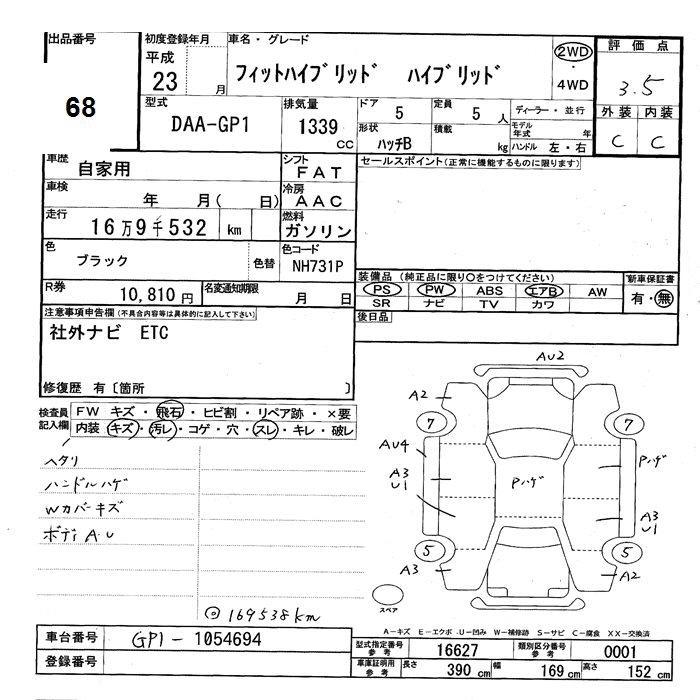 出品番号
68
初度登録年月
平成
23 月
車名・グレード
フィットハイブリッド ハイブリッド
2WD
・
4WD
評価点
3.5
外装 内装
C C
型式
DAA-GP1
排気量
1339
CC
ドア
5
定員
5 人
ディーラー・並行
形状
ハッチB
積載
kg
モデル
年式 年
ハンドル 左・右
車歴
自家用
シフト
FAT
セールスポイント(正常に機能するものに限ります)
車検
年 月( 日)
冷房
AAC
走行
16万9千532 km
燃料
ガソリン
色
ブラック
色替
色コード
NH731P
装備品 (純正品に限り○をつけてください)
PS PW ABS エアB AW
SR ナビ TV カワ
新車保証書
有・無
R券
10,810 円
名変通知期限
月 日
後日品
注意事項申告欄(不具合内容等は具体的に記入して下さい)
社外ナビ ETC
修復歴 有〔箇所 〕
検査員
記入欄
FW キズ・飛石・ヒビ割・リペア跡・×要
内装 キズ・汚レ・コゲ・穴・スレ・キレ・破レ
ヘタリ
ハンドルハゲ
Wカバーキズ
ボディA.U
◎169538km
AU2
A2
7
7
AU4
A3
U1
Pハゲ
Pハゲ
A3
U1
5
5
A3
A2
スペア
A-キズ E-エクボ U-凹み W-補修跡 S-サビ C-腐食 XX-交換済
車台番号
GP1-1054694
登録番号
型式指定番号
参考
16627
類別区分番号
参考
0001
車庫証明用
参考
長さ
390 cm
幅
169 cm
高さ
152 cm